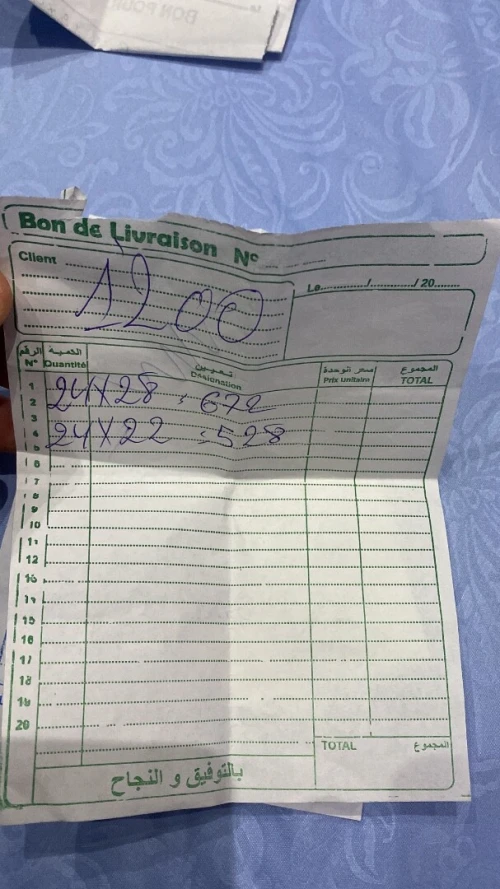 BON POUR
Bon de Livraison N°
Client
1200
Le / / 20
الرقم الكمية تعيين سعر الوحدة المجموع
N° Quantité Désignation Prix Unitaire TOTAL
1
24X28 : 672
2
3
24X22 : 528
4
5
6
7
8
9
10
11
12
16
14
15
16
17
18
19
20
TOTAL المجموع
بالتوفيق و النجاح